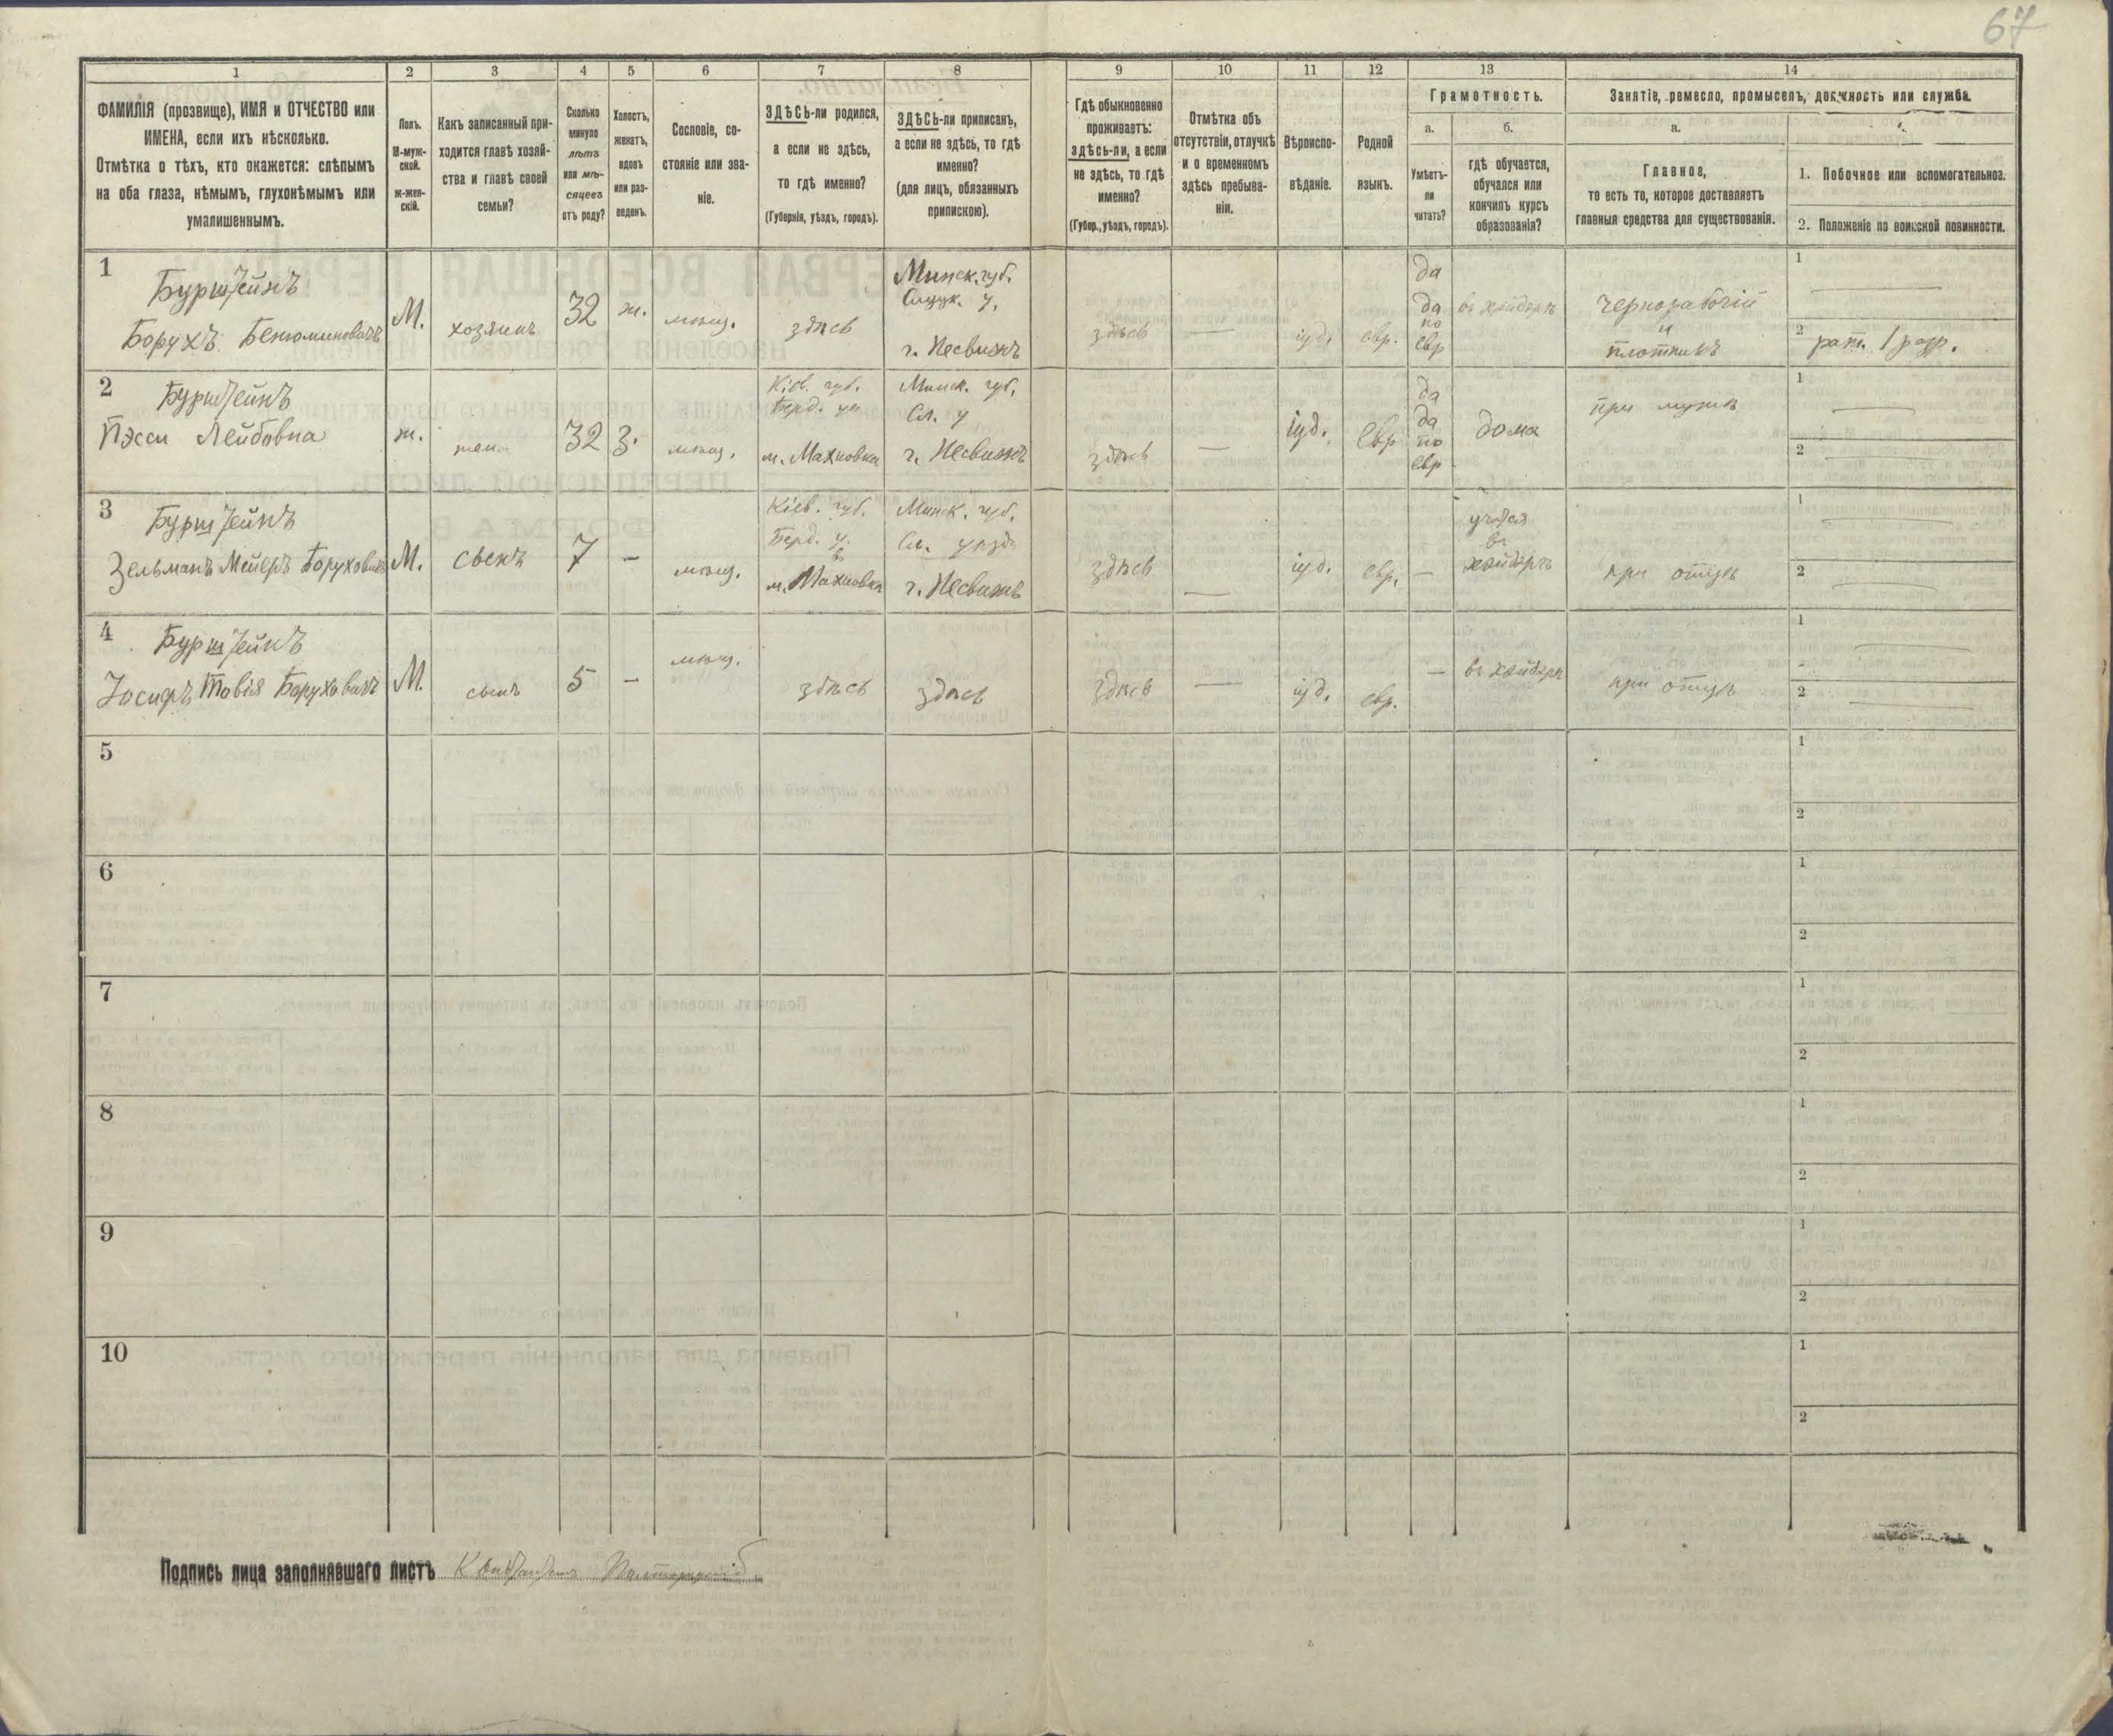 67
1 2 3 4 5 6 7 8 9 10 11 12 13 14
ФАМИЛІЯ (прозвище), ИМЯ и ОТЧЕСТВО или
ИМЕНА, если ихъ нѣсколько.
Отмѣтка о тѣхъ, кто окажется: слѣпымъ
на оба глаза, нѣмымъ, глухонѣмымъ или
умалишеннымъ.
Полъ.
М-муж-
ской.
ж-жен-
скій.
Какъ записанный при-
ходится главѣ хозяй-
ства и главѣ своей
семьи?
Сколько
минуло
лѣтъ
или мѣ-
сяцевъ
отъ роду?
Холостъ,
женатъ,
вдовъ
или раз-
веденъ.
Сословіе, со-
стояніе или зва-
ніе.
ЗДѢСЬ-ли родился,
а если не здѣсь,
то гдѣ именно?
(Губернія, уѣздъ, городъ).
ЗДѢСЬ-ли приписанъ,
а если не здѣсь, то гдѣ
именно?
(для лицъ, обязанныхъ
припискою).
Гдѣ обыкновенно
проживаетъ:
здѣсь-ли, а если
не здѣсь, то гдѣ
именно?
(Губер., уѣздъ, городъ).
Отмѣтка объ
отсутствіи, отлучкѣ
и о временномъ
здѣсь пребыва-
ніи.
Вѣроиспо-
вѣданіе.
Родной
языкъ.
Грамотность.
а.
Умѣетъ-
ли
читать?
б.
гдѣ обучается,
обучался или
кончилъ курсъ
образованія?
Занятіе, ремесло, промыселъ, должность или служба.
а.
Главное,
то есть то, которое доставляетъ
главныя средства для существованія.
1. Побочное или вспомогательное.
2. Положеніе по воинской повинности.
1
Бурштейнъ
Борухъ Бенюминовичъ
М.
хозяинъ
32
ж.
мѣщ.
здѣсь
Минск. губ.
Слуцк. у.
г. Несвижъ
здѣсь
—
іуд.
евр.
да
да
по
евр
въ хэйдерѣ
чернорабочій
и
плотникъ
1
2 ратн. 1 разр.
2
Бурштейнъ
Пэси Лейбовна
ж.
жена
32
З.
мѣщ.
Кіев. губ.
Берд. у.
м. Махновка
Минск. губ.
Сл. у
г. Несвижъ
здѣсь
—
іуд.
евр
да
да
по
евр
дома
при мужѣ
1
2
3
Бурштейнъ
Зельманъ Мейеръ Боруховичъ
М.
сынъ
7
-
мѣщ.
Кіев. губ.
Берд. у.
в
м. Махновка
Минск. губ.
Сл. уѣзда
г. Несвижъ
здѣсь
—
іуд.
евр.
—
учится
въ
хэйдерѣ
при отцѣ
1
2
4
Бурштейнъ
Іосифъ Товія Боруховичъ
М.
сынъ
5
-
мѣщ.
здѣсь
здѣсь
здѣсь
—
іуд.
евр.
—
въ хэйдерѣ
при отцѣ
1
2
5
1
2
6
1
2
7
1
2
8
1
2
9
1
2
10
1
2
Подпись лица заполнявшаго листъ